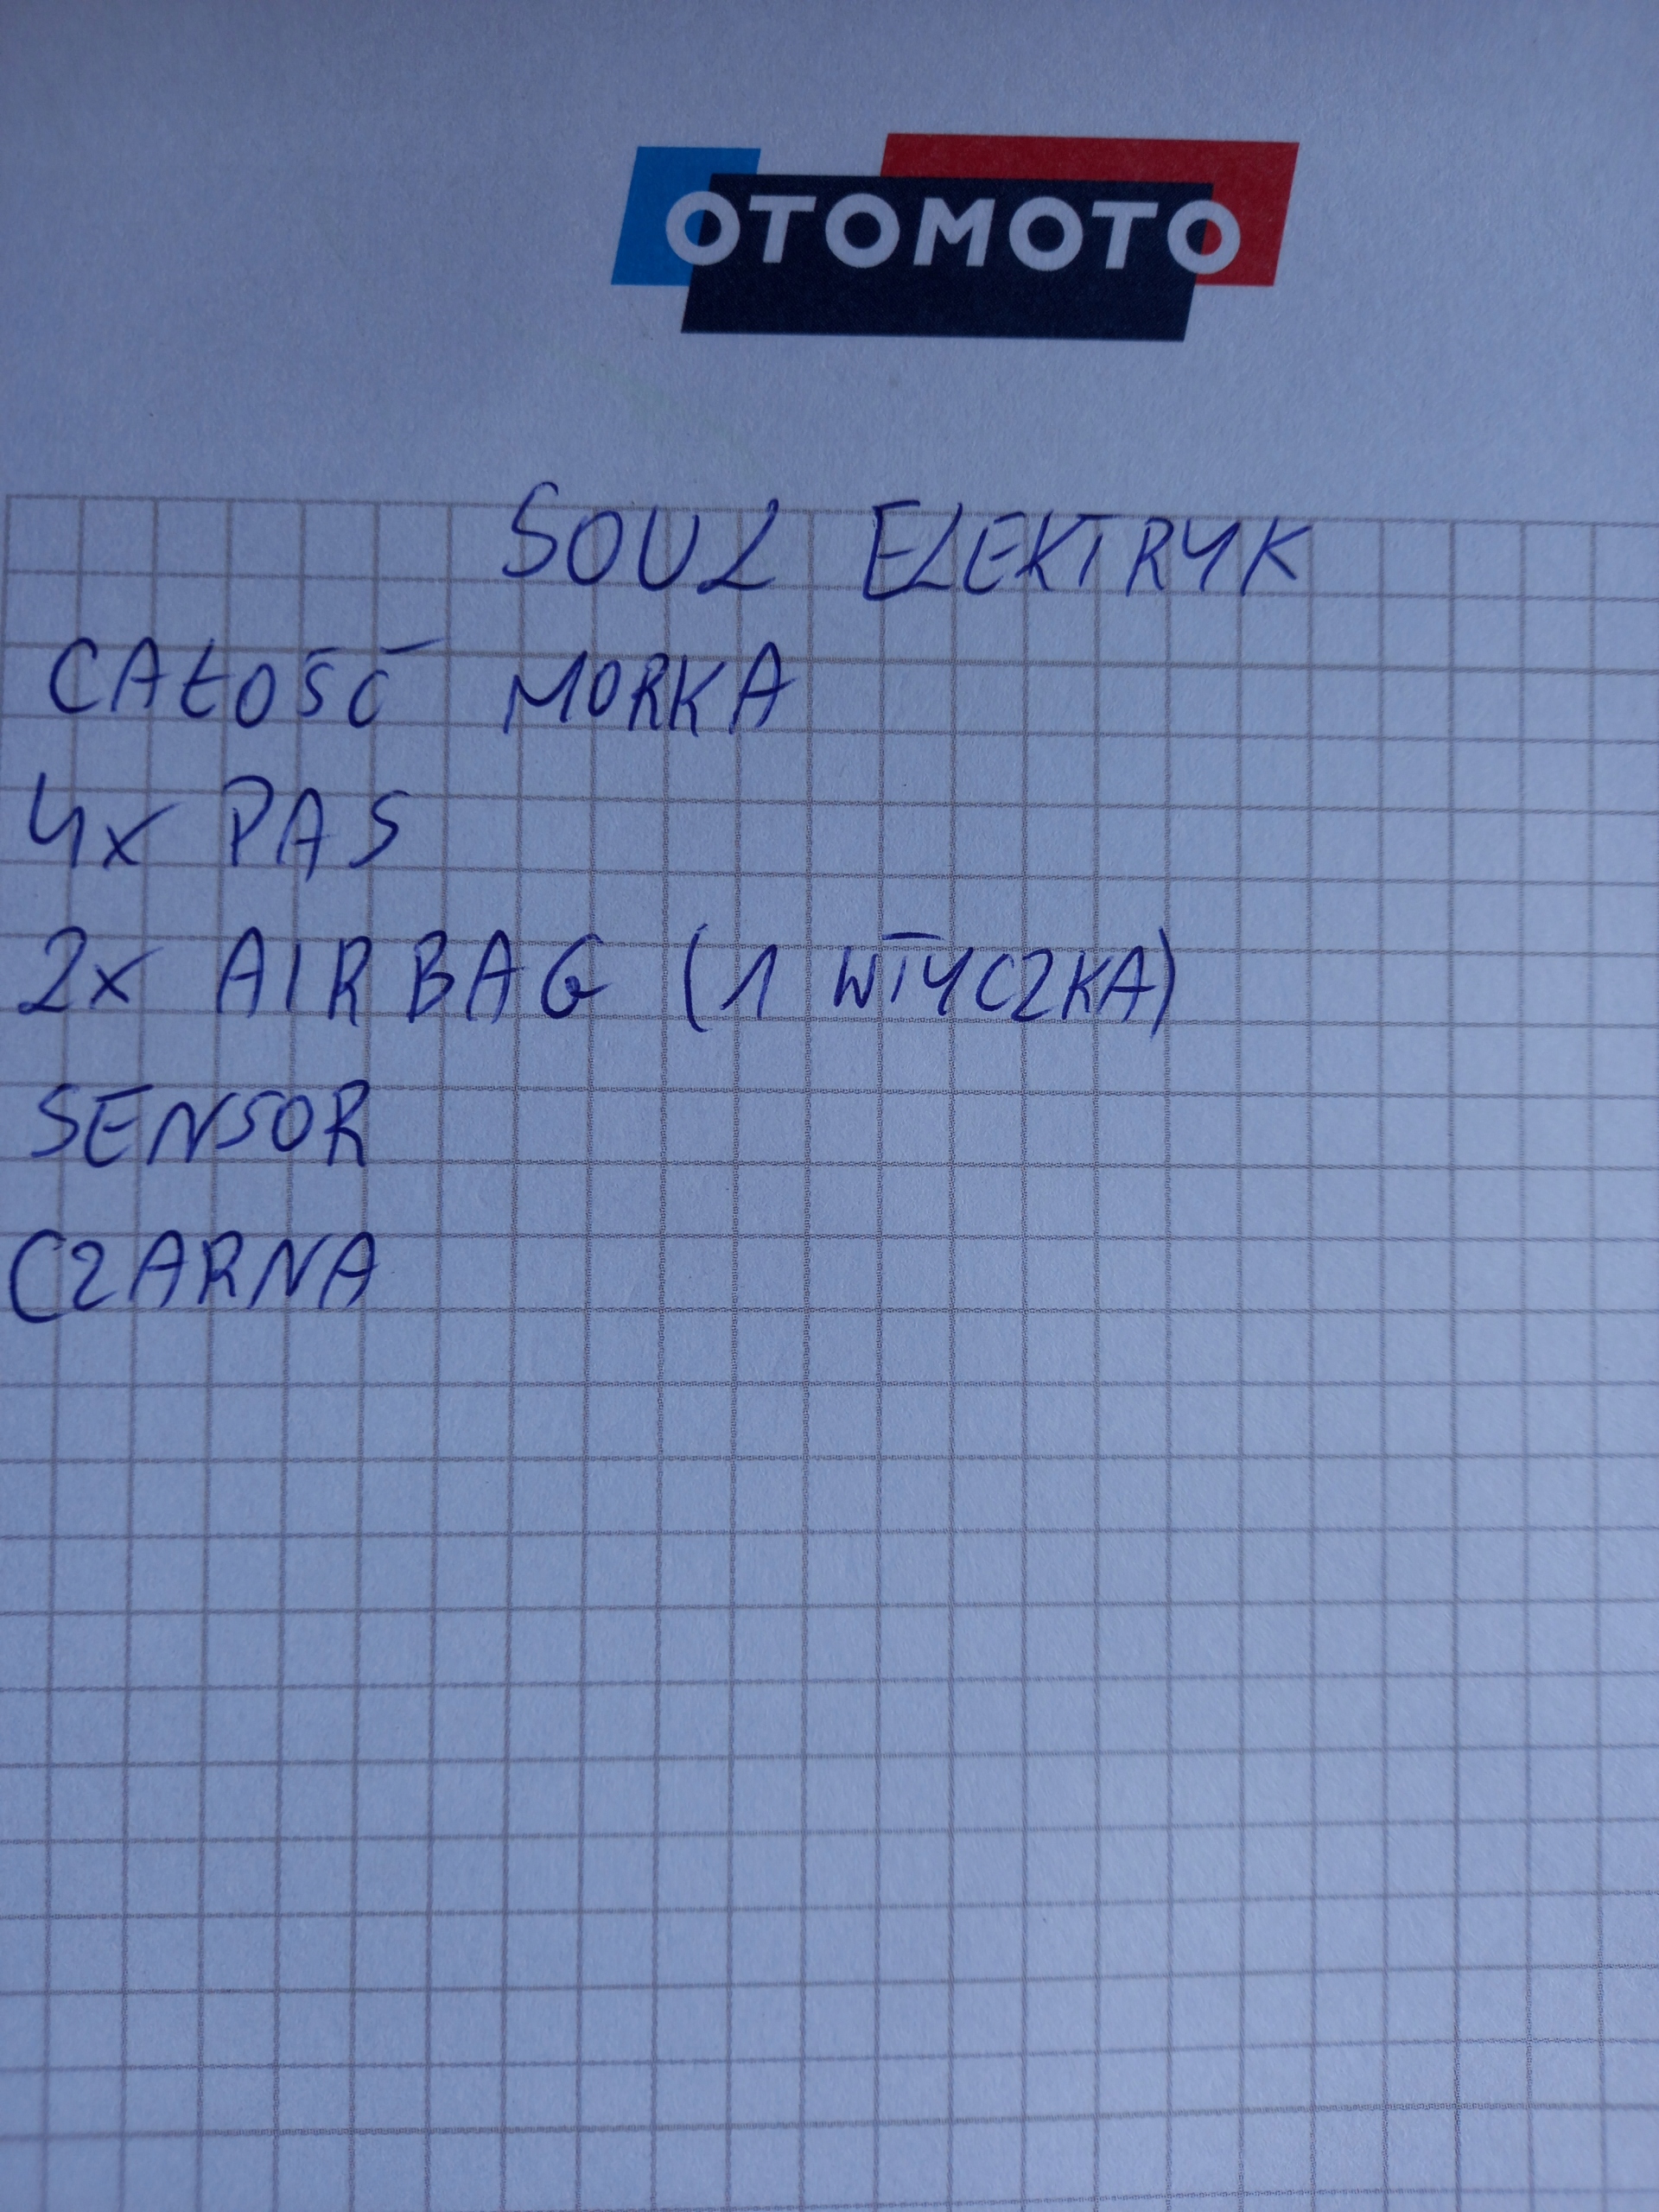 OTOMOTO
SOUL ELEKTRYK
CAŁOŚĆ MORKA
4x PAS
2x AIRBAG (1 WTYCZKA)
SENSOR
CZARNA